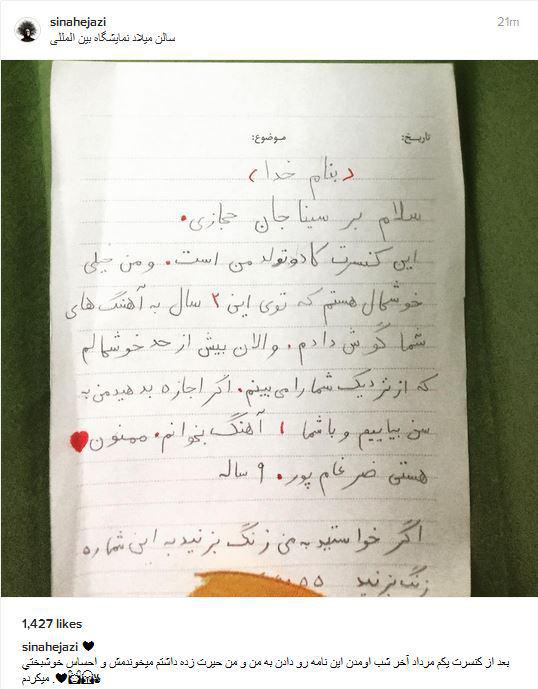 sinahejazi
21m
سالن میلاد نمایشگاه بین المللی
تاریخ: موضوع:
(بنام خدا)
سلام بر سینا جان حجازی.
این کنسرت کادو تولد من است. و من خیلی
خوشحال هستم که توی این ۲ سال به آهنگ های
شما گوش دادم. والان بیش از حد خوشحالم
که از نزدیک شما را می بینم. اگر اجازه بدهید من به
سن بیاییم و با شما ۱ آهنگ بخوانم. ممنون
هستی ضرغام پور. ۹ ساله
اگر خواستید به من زنگ بزنید به این شماره
زنگ بزنید
1,427 likes
sinahejazi 🖤
بعد از کنسرت یکم مرداد آخر شب اومدن این نامه رو دادن به من و من حیرت زده داشتم میخوندمش و احساس خوشبختی
میکردم.